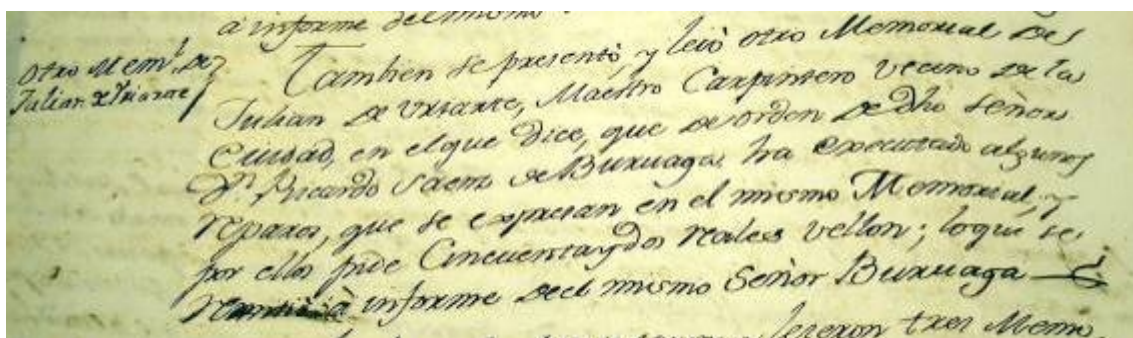 à informe del mismo
Otro Mem.l de
Julian de Uriarte
Tambien se presentó, y leió otro Memorial de
Julian de Uriarte, Maestro Carpintero vecino de la
Ciudad, en el que Dice, que de orden de dho Señor
Dn. Ricardo Saenz de Buruaga, ha executado algunos
reparos, que se expresan en el mismo Memorial, y
por ellos pide Cincuenta y dos reales vellon; lo que se
remitió à informe del mismo Señor Buruaga
leyeron tres Memo